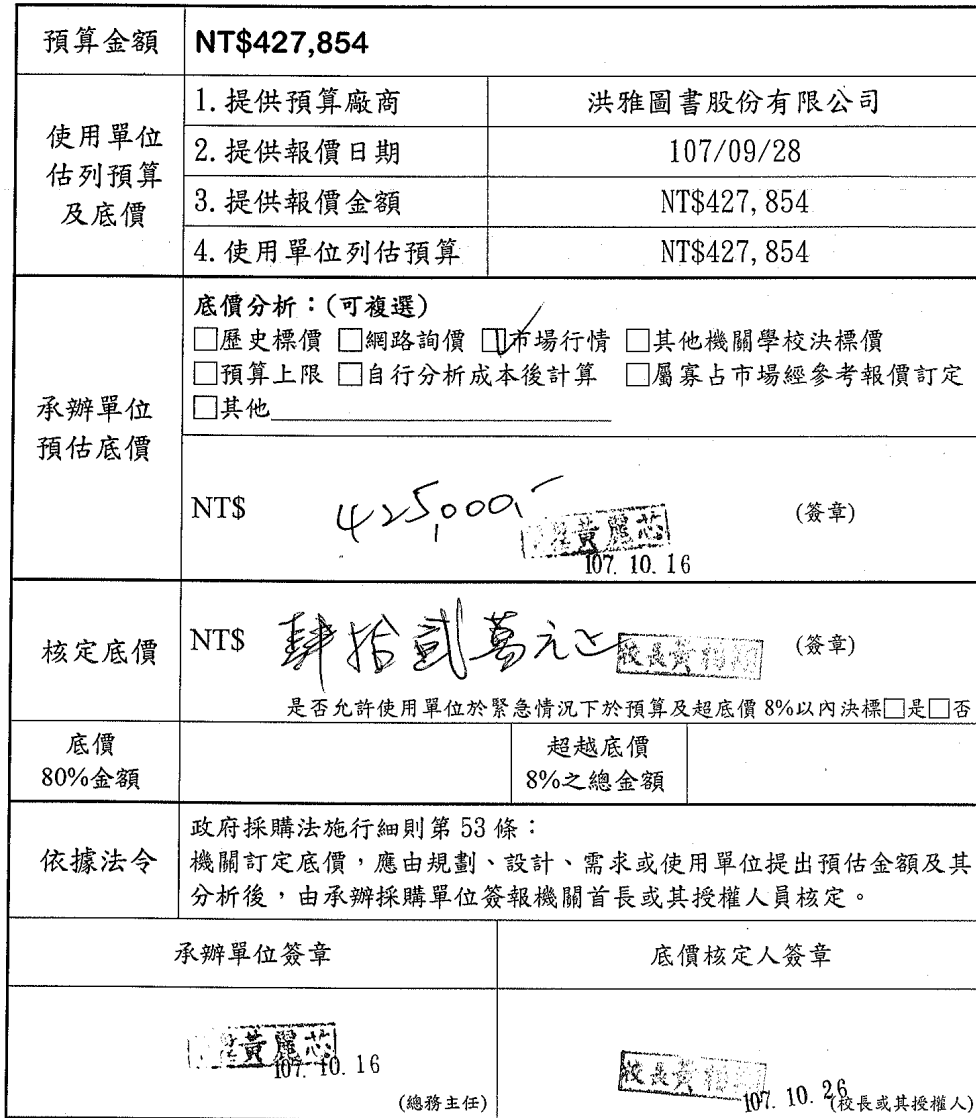 預算金額 NT$427,854
使用單位估列預算及底價
1.提供預算廠商 洪雅圖書股份有限公司
2.提供報價日期 107/09/28
3.提供報價金額 NT$427,854
4.使用單位列估預算 NT$427,854
承辦單位預估底價
底價分析：(可複選)
□歷史標價 □網路詢價 ☑市場行情 □其他機關學校決標價
□預算上限 □自行分析成本後計算 □屬寡占市場經參考報價訂定
□其他
NT$ 425,000.- 黃麗芯 (簽章)
107. 10. 16
核定底價 NT$ 肆拾貳萬元正 校長黃 (簽章)
是否允許使用單位於緊急情況下於預算及超底價 8%以內決標□是□否
底價80%金額
超越底價8%之總金額
依據法令
政府採購法施行細則第 53 條：
機關訂定底價，應由規劃、設計、需求或使用單位提出預估金額及其
分析後，由承辦採購單位簽報機關首長或其授權人員核定。
承辦單位簽章 底價核定人簽章
黃麗芯 107. 10. 16
(總務主任)
校長黃 107. 10. 26
(校長或其授權人)